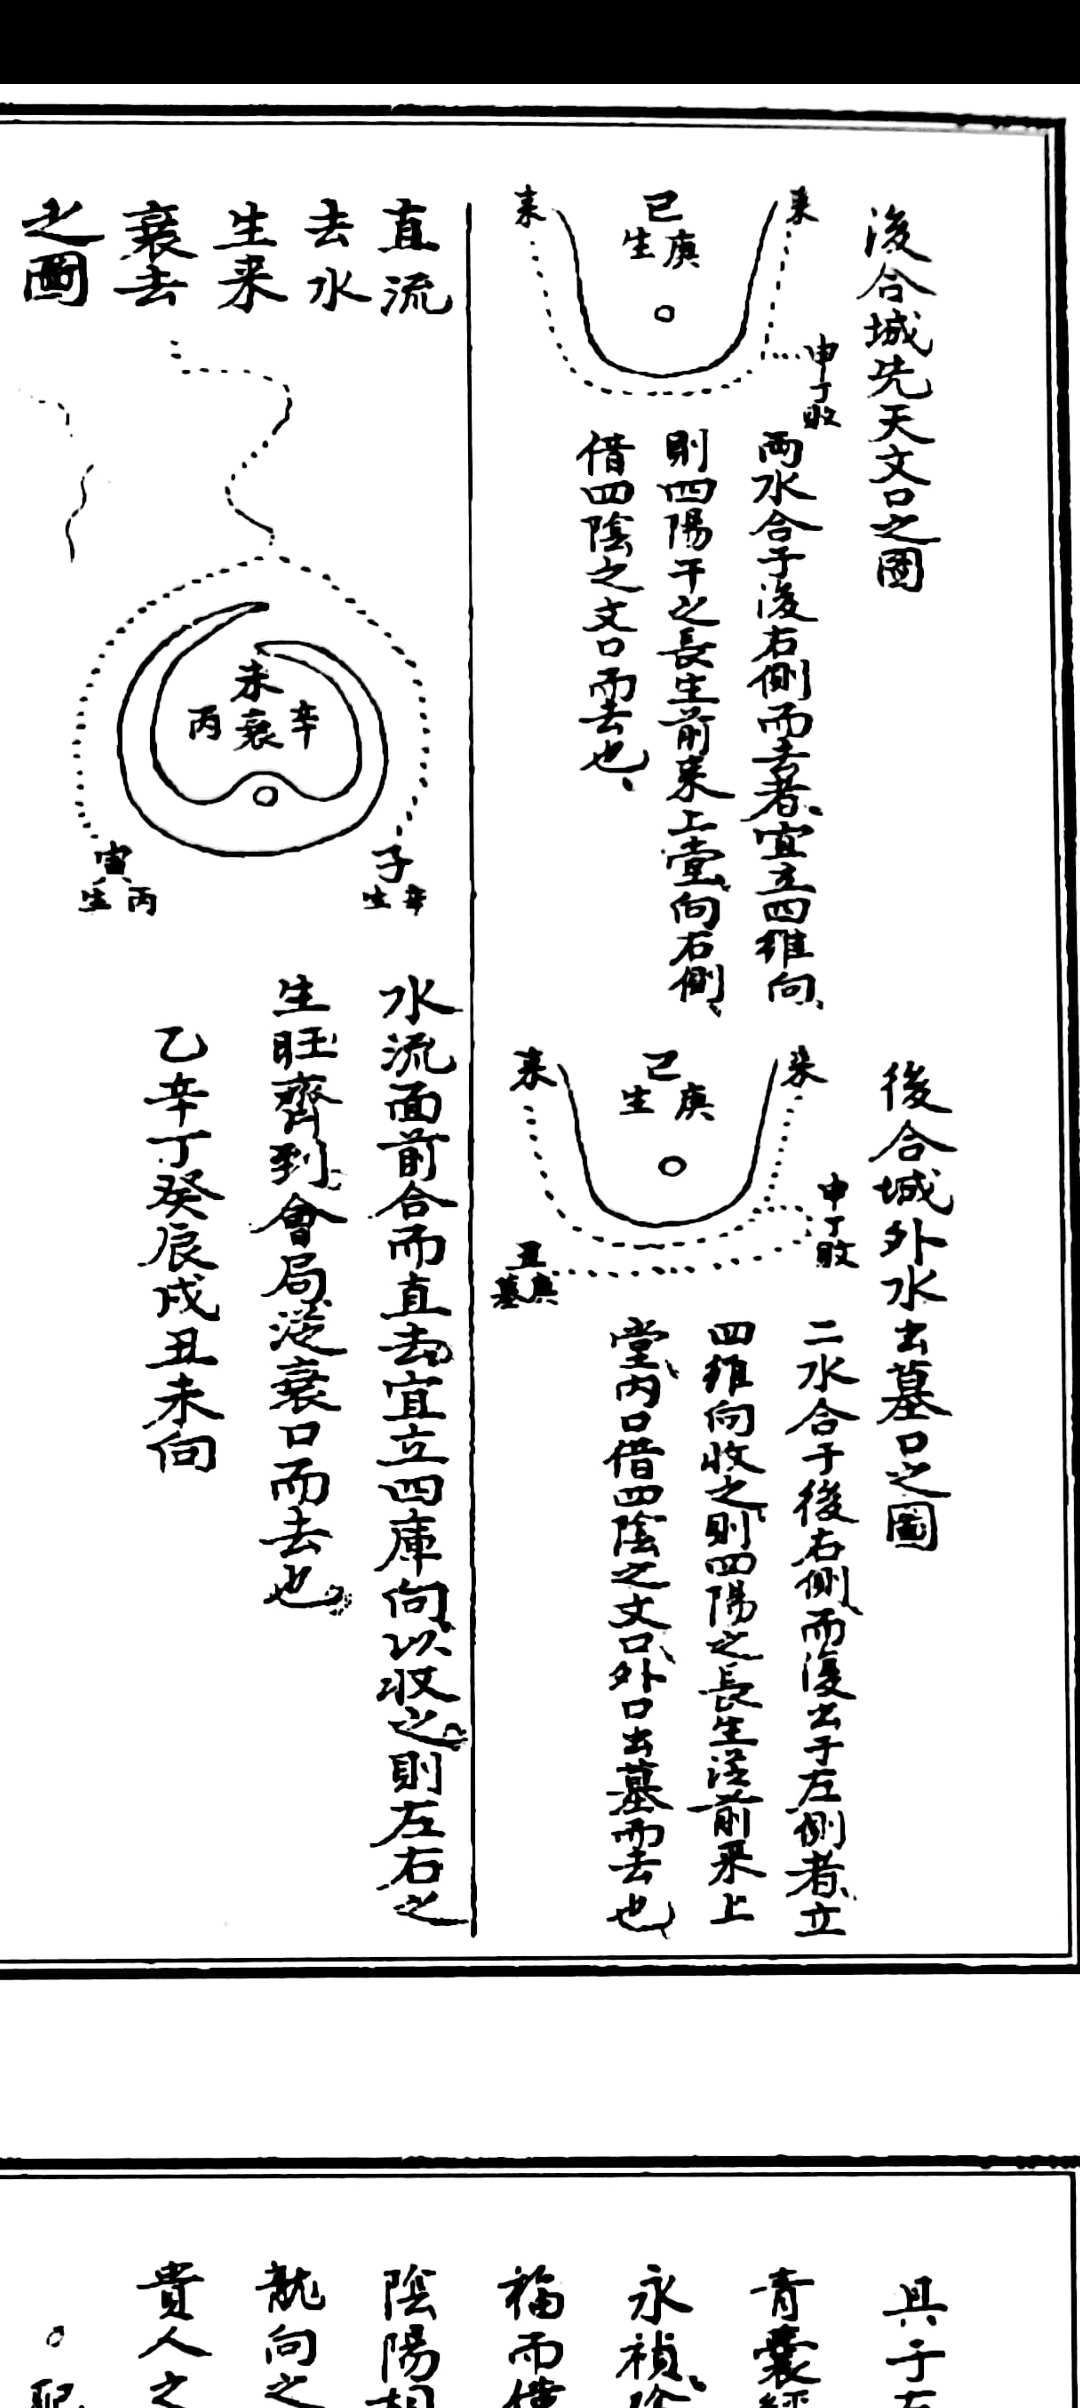 後合城先天文口之圖
来
来
巳
庚
生
申丁收
兩水合于後右側而去者、宜立四維向、
則四陽干之長生前来上堂、向右側、
借四陰之文口而去也、
後合城外水出墓口之圖
来
来
巳
庚
生
申丁收
丑
庚
墓
二水合于後右側、而復出于左側者、立
四維向收之、則四陽之長生從前来上
堂、内口借四陰之文口、外口出墓而去也、
直流
去水
生来
衰去
之圖
未
辛
衰
丙
子
辛
生
寅
丙
生
水流面前合而直去、宜立四庫向、以收之、則左右之
生旺齊到、會局從衰口而去也。
乙辛丁癸辰戌丑未向
具于
青囊經
永禎
福而
陰陽
龍向之
貴人之